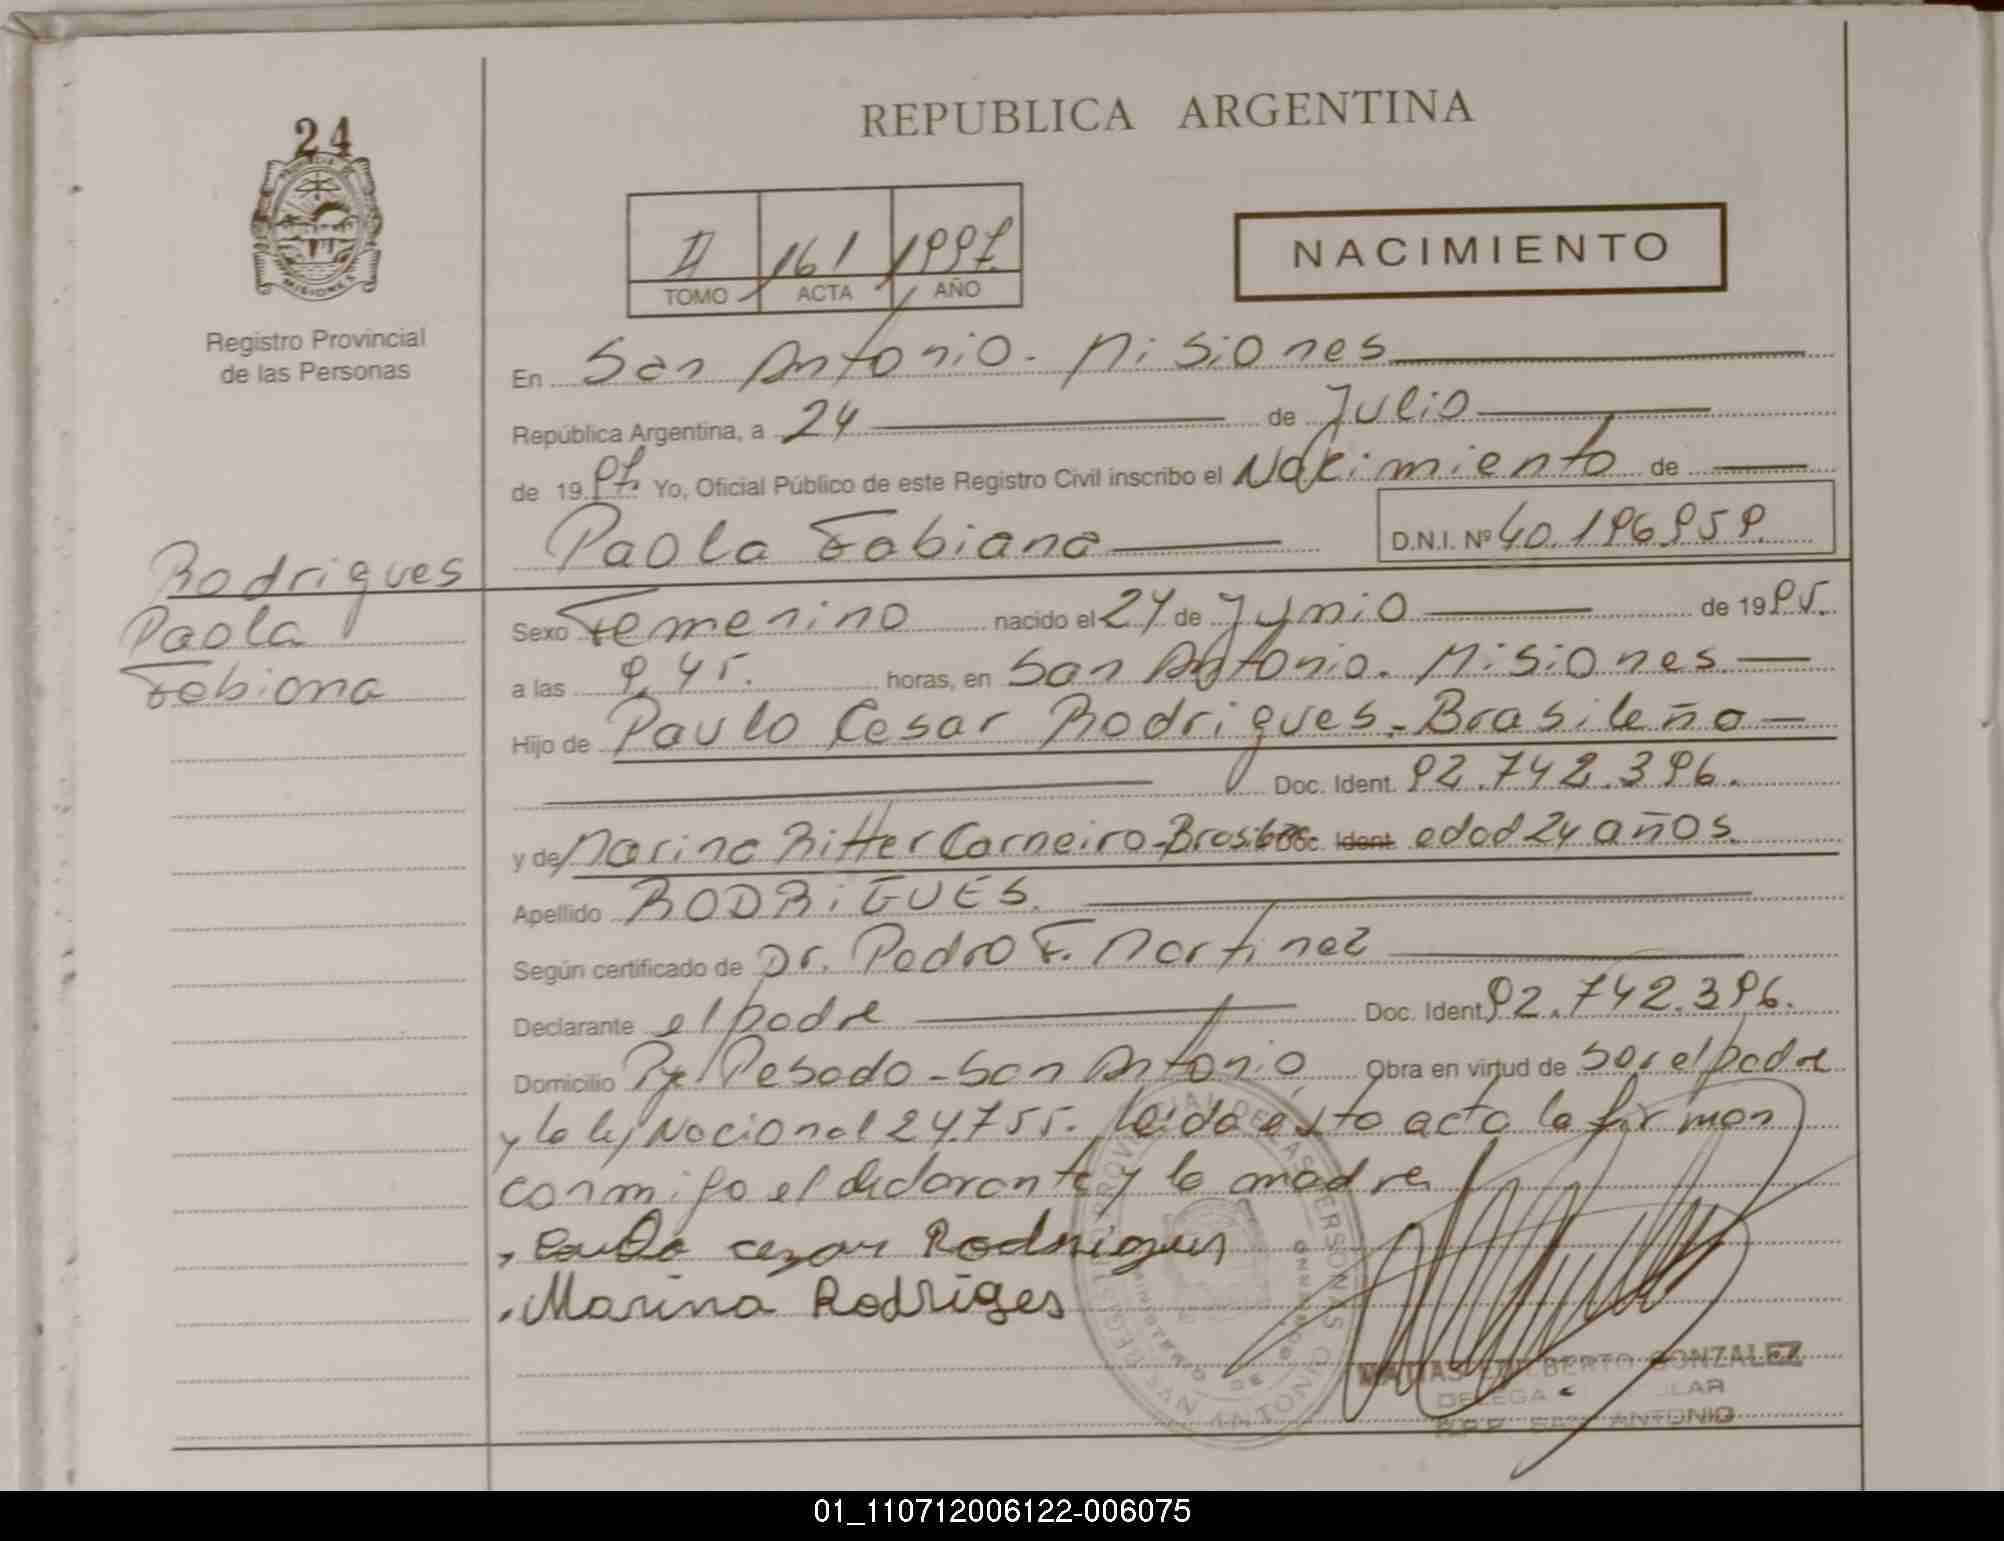 24
REPUBLICA ARGENTINA
II 161 1997.
TOMO ACTA AÑO
NACIMIENTO
Registro Provincial
de las Personas
En San Antonio. Misiones
República Argentina, a 24 de Julio
de 1997. Yo, Oficial Público de este Registro Civil inscribo el Nacimiento de
Paola Fabiana D.N.I. Nº 40.196959.
Rodrigues
Paola
Fabiana
Sexo Femenino nacido el 24 de Junio de 1995.
a las 9,45. horas, en San Antonio. Misiones
Hijo de Paulo Cesar Rodrigues. Brasileño
Doc. Ident. 92.742.396.
y de Marina Ritter Carneiro-Brasileña Doc. Ident. edad 24 años.
Apellido RODRIGUES.
Según certificado de Dr. Pedro F. Martinez
Declarante el padre Doc. Ident. 92.742.396.
Domicilio Pje. Pesado - San Antonio Obra en virtud de ser el padre
y la ley Nacional 24.755. Leída ésta acta la firman
conmigo el declarante y la madre
Paulo cezar Rodrigues
Marina Rodriges
REGISTRO PROVINCIAL DE LAS PERSONAS
MINISTERIO DE GOBIERNO
SAN ANTONIO
MATIAS EDELBERTO GONZALEZ
R.P.P. SAN ANTONIO
01_110712006122-006075